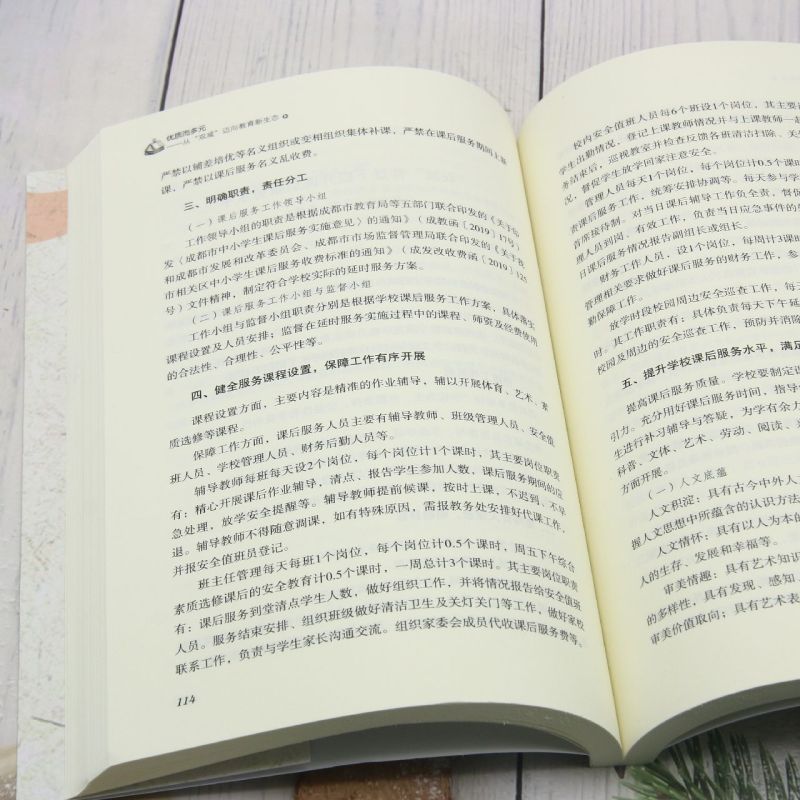 优质而多元
——从“双减”迈向教育新生态
严禁以辅差培优等名义组织或变相组织集体补课，严禁在课后服务期间上新
课，严禁以课后服务名义乱收费。
三、明确职责，责任分工
（一）课后服务工作领导小组
工作领导小组的职责是根据成都市教育局等五部门联合印发的《关于印
发〈成都市中小学生课后服务实施意见〉的通知》（成教函〔2019〕17号）
和成都市发展和改革委员会、成都市市场监督管理局联合印发的《关于我
市相关区中小学生课后服务收费标准的通知》（成发改收费函〔2019〕125
号）文件精神，制定符合学校实际的延时服务方案。
（二）课后服务工作小组与监督小组
工作小组与监督小组职责分别是根据学校课后服务工作方案，具体落实
课程设置及人员安排；监督在延时服务实施过程中的课程、师资及经费使用
的合法性、合理性、公平性等。
四、健全服务课程设置，保障工作有序开展
课程设置方面，主要内容是精准的作业辅导，辅以开展体育、艺术、素
质选修等课程。
保障工作方面，课后服务人员主要有辅导教师、班级管理人员、安全值
班人员、学校管理人员、财务后勤人员等。
辅导教师每班每天设2个岗位，每个岗位计1个课时，其主要岗位职责
有：精心开展课后作业辅导，清点、报告学生参加人数，课后服务期间的应
急处理，放学安全提醒等。辅导教师提前候课，按时上课，不迟到、不早
退。辅导教师不得随意调课，如有特殊原因，需报教务处安排好代课工作，
并报安全值班员登记。
班主任管理每天每班1个岗位，每个岗位计0.5个课时，周五下午综合
素质选修课后的安全教育计0.5个课时，一周总计3个课时。其主要岗位职责
有：课后服务到堂清点学生人数，做好组织工作，并将情况报告给安全值班
人员。服务结束安排、组织班级做好清洁卫生及关灯关门等工作，做好家校
联系工作，负责与学生家长沟通交流。组织家委会成员代收课后服务费等。
114
校内安全值班人员每6个班设1个岗位，其主要
学生出勤情况，登记上课教师情况并与上课教师一起
务结束后，巡视教室并检查反馈各班清洁扫除、关灯
，督促学生放学回家注意安全。
管理人员每天1个岗位，每个岗位计0.5个课时
责课后服务工作，统筹安排协调等。每天参与学
首席接待制。对当日课后辅导工作负全责，督促
理人员到岗。有效工作，负责当日应急事件的
日课后服务情况报告副组长或组长。
财务工作人员，设1个岗位，每周计3课时
管理相关要求做好课后服务的财务工作，参
勤保障工作。
放学时段校园周边安全巡查工作，每天
时。其工作职责有：具体负责每天下午延
校园及周边的安全巡查工作，预防并消除
五、提升学校课后服务水平，满足
提高课后服务质量。学校要制定课
引力。充分用好课后服务时间，指导
生进行补习辅导与答疑，为学有余力
科普、文体、艺术、劳动、阅读、
方面开展。
（一）人文底蕴
人文积淀：具有古今中外人文
握人文思想中所蕴含的认识方法
人文情怀：具有以人为本的
人的生存、发展和幸福等。
审美情趣：具有艺术知识
的多样性，具有发现、感知、
审美价值取向；具有艺术表